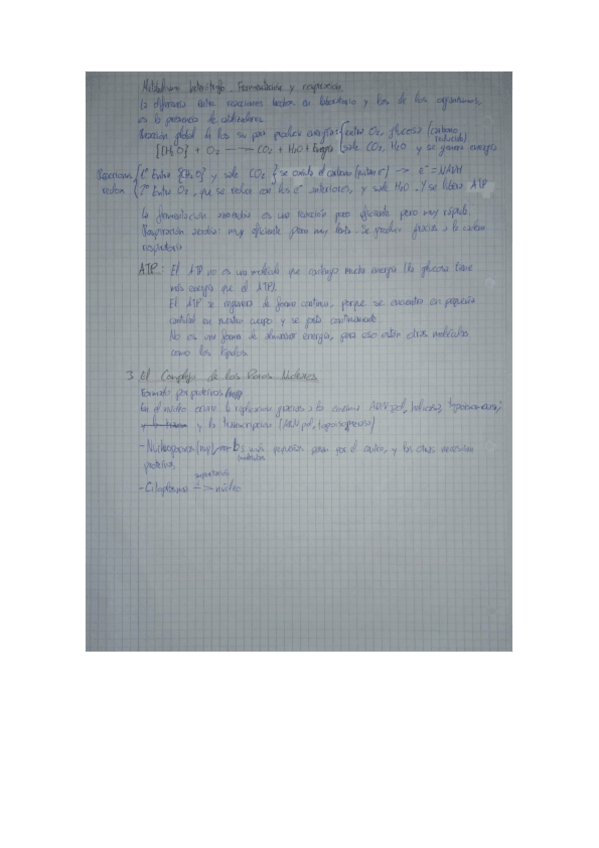 Metabolismo Fermentación y respiración
La diferencia entre reacciones hechas en laboratorio y las de los organismos,
es la presencia de catalizadores
Reacción global de los seres para producir energía: entra O₂, glucosa (carbono reducido)
[CH₂O] + O₂ → CO₂ + H₂O + Energía sale CO₂, H₂O y se genera energía
Reacciones redox
1º Entra [CH₂O] y sale CO₂ } se oxida el carbono (pierde e⁻) → e⁻ = NADH
2º Entra O₂, que se reduce con los e⁻ anteriores, y sale H₂O. Y se libera ATP
La fermentación es una reacción poco eficiente pero muy rápida.
Respiración: muy eficiente pero muy lenta. Se produce gracias a la cadena
respiratoria
ATP: El ATP no es una molécula que contenga mucha energía (la glucosa tiene
más energía que el ATP).
El ATP se regenera de forma continua, porque se encuentra en pequeña
cantidad en nuestro cuerpo y se gasta continuamente
No es una forma de almacenar energía, para eso están otras moléculas
como los lípidos.
3. El Complejo de los Poros Nucleares
Formado por proteínas
En el núcleo ocurre la replicación gracias a la ADN pol, helicasa, topoisomerasa,
y la transcripción (ARN pol, topoisomerasa)
- Nucleoporinas (nup) → pequeñas pasan por el poro, y las otras necesitan
proteínas
importinas
- Citoplasma → núcleo